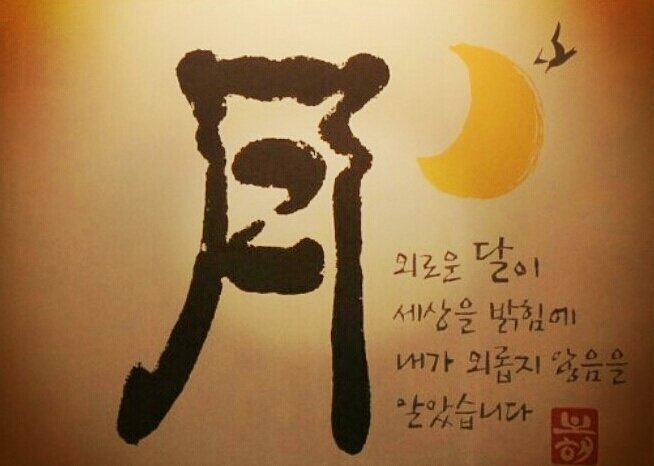 月
외로운 달이
세상을 밝힘에
내가 외롭지 않음을
알았습니다